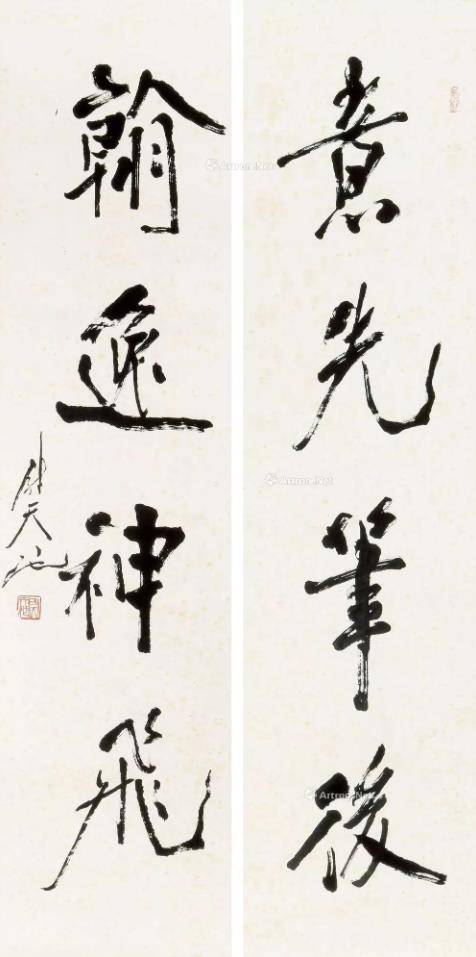 意先筆後
翰逸神飛
尉天池
Artron.Net
Artron.Net
Artron.Net